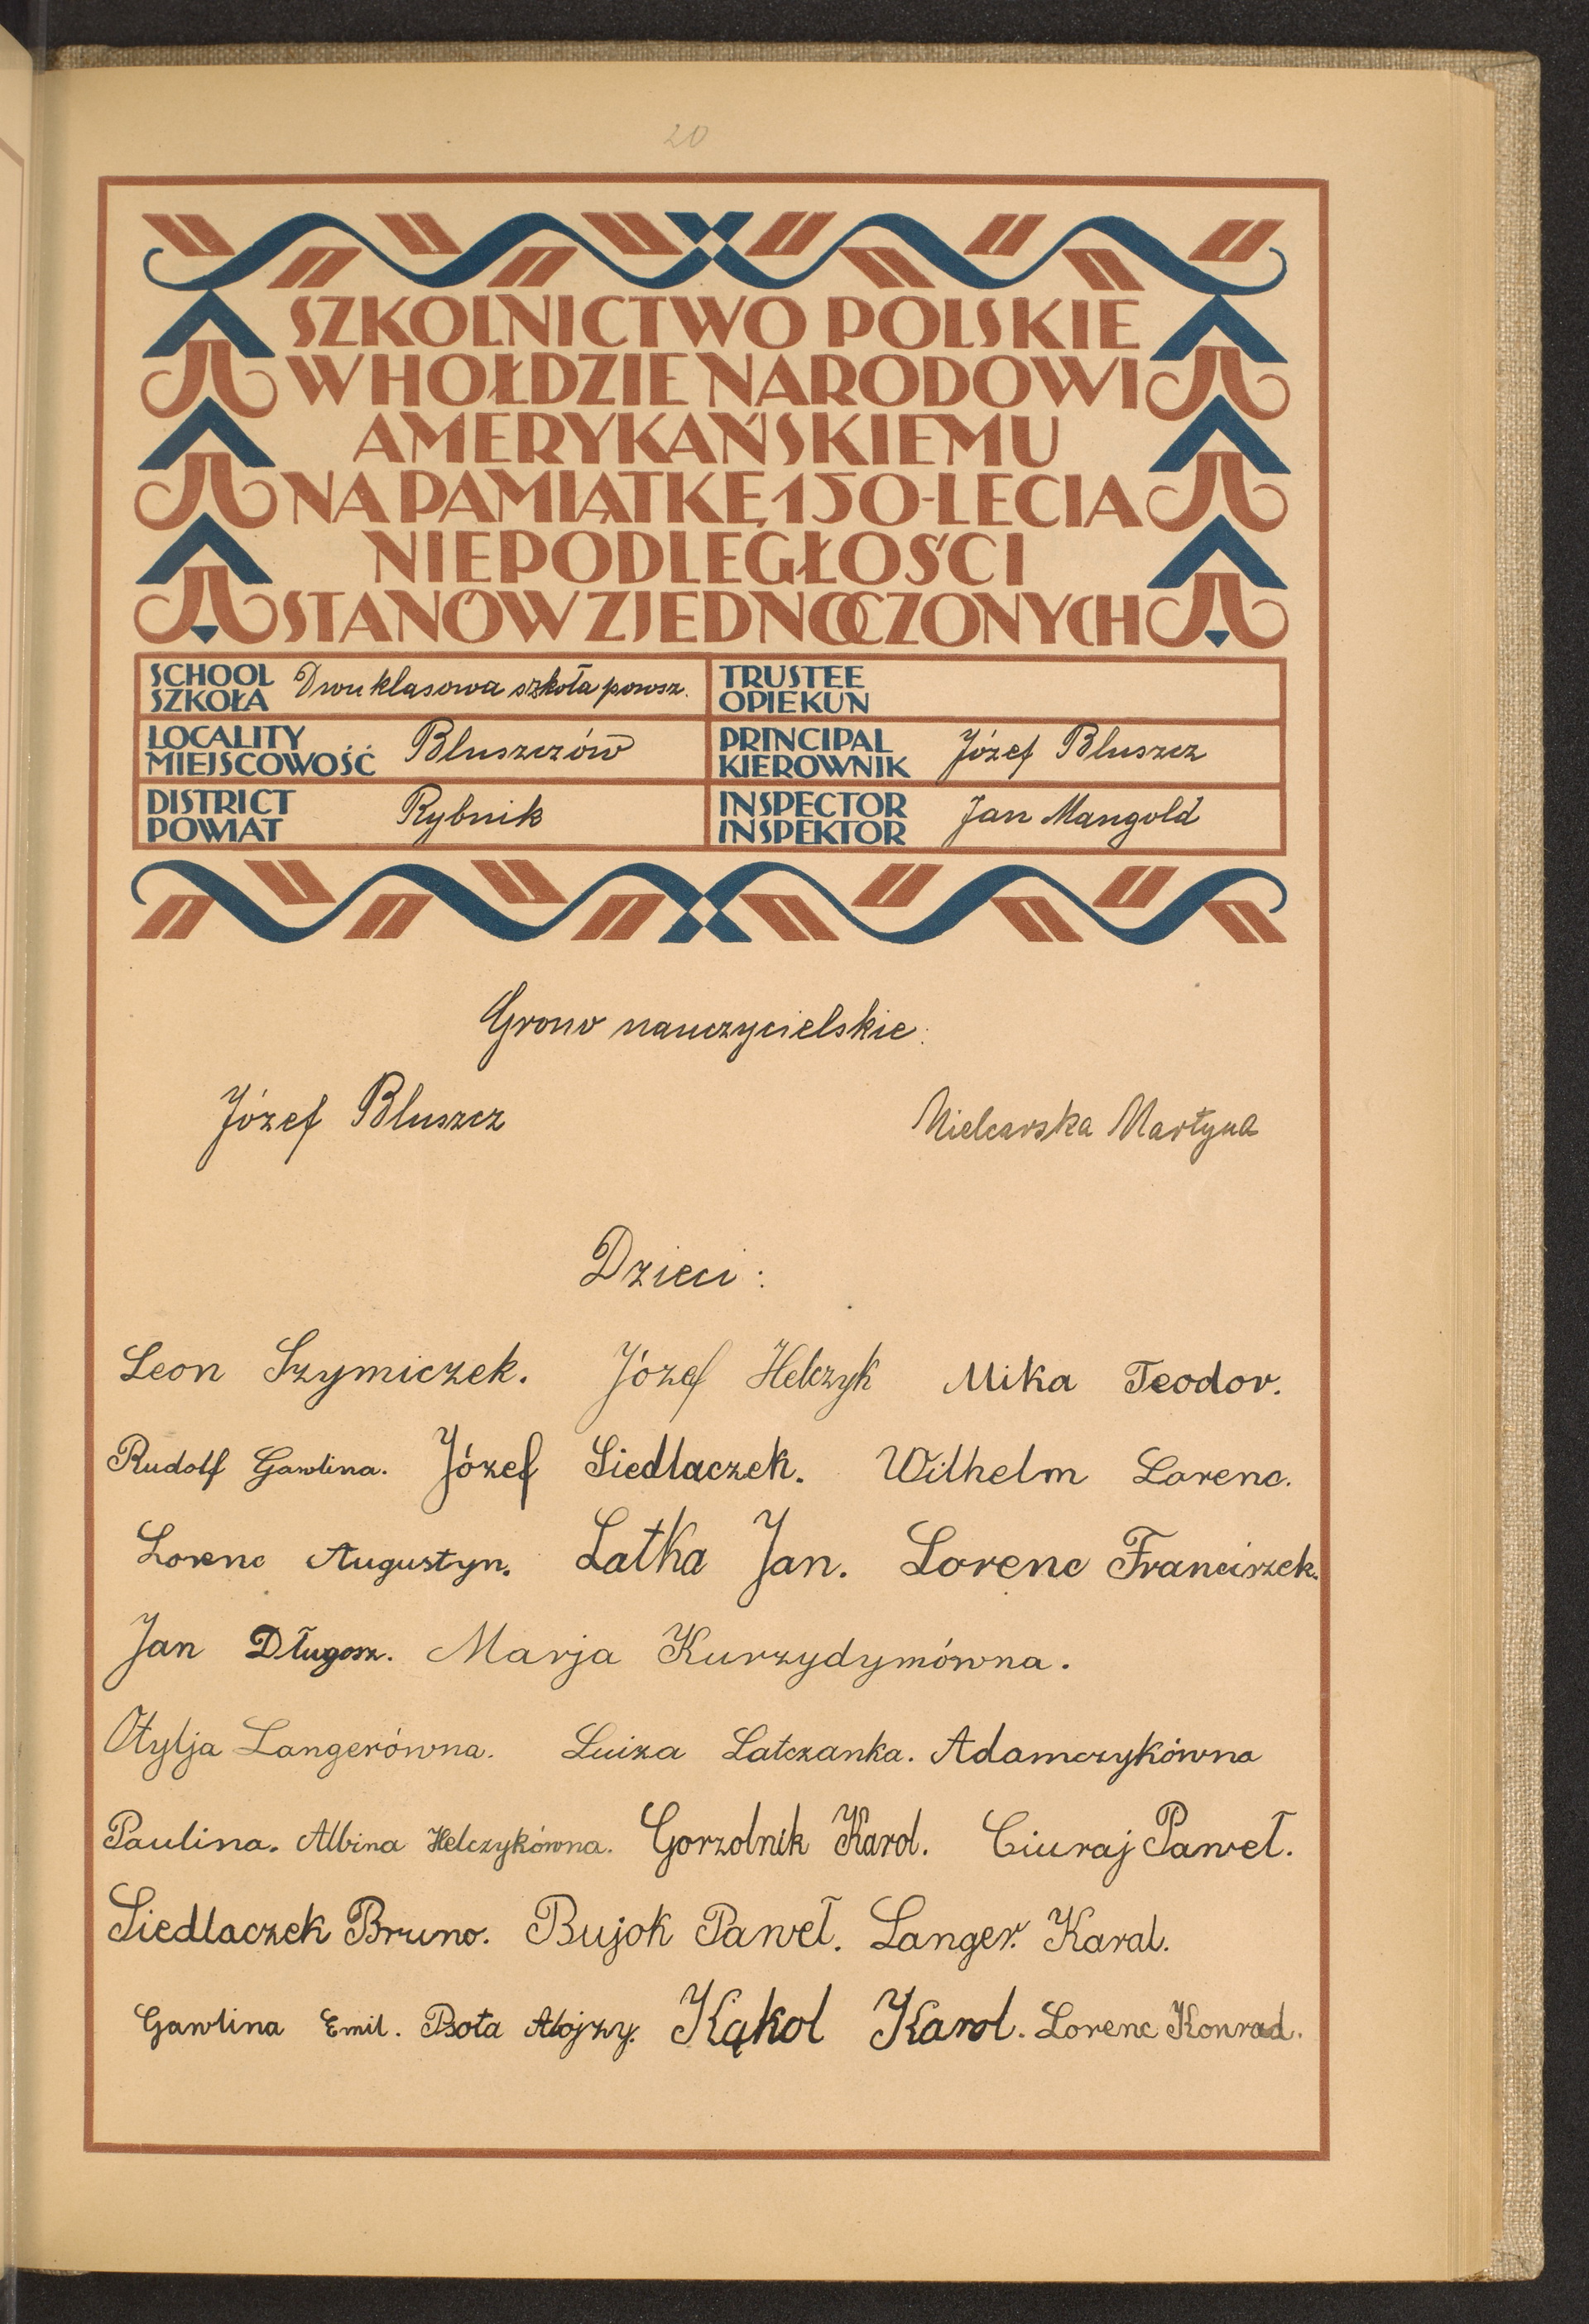 20
SZKOLNICTWO POLSKIE
W HOŁDZIE NARODOWI
AMERYKAŃSKIEMU
NA PAMIĄTKĘ 150-LECIA
NIEPODLEGŁOŚCI
STANÓW ZJEDNOCZONYCH
SCHOOL
SZKOŁA
Dwuklasowa szkoła powsz.
TRUSTEE
OPIEKUN
LOCALITY
MIEJSCOWOŚĆ
Bluszczów
PRINCIPAL
KIEROWNIK
Józef Bluszcz
DISTRICT
POWIAT
Rybnik
INSPECTOR
INSPEKTOR
Jan Mangold
Grono nauczycielskie:
Józef Bluszcz Mielcarska Martyna
Dzieci:
Leon Szymiczek. Józef Helczyk Mika Teodor.
Rudolf Gawlina. Józef Siedlaczek. Wilhelm Lorenc.
Lorenc Augustyn. Latka Jan. Lorenc Franciszek.
Jan Długosz. Marja Kurzydymówna.
Otylja Langerówna. Luiza Latczanka. Adamczykówna
Paulina. Albina Helczykówna. Gorzolnik Karol. Ciuraj Paweł.
Siedlaczek Bruno. Bujok Paweł. Langer Karol.
Gawlina Emil. Psota Alojzy. Kąkol Karol. Lorenc Konrad.